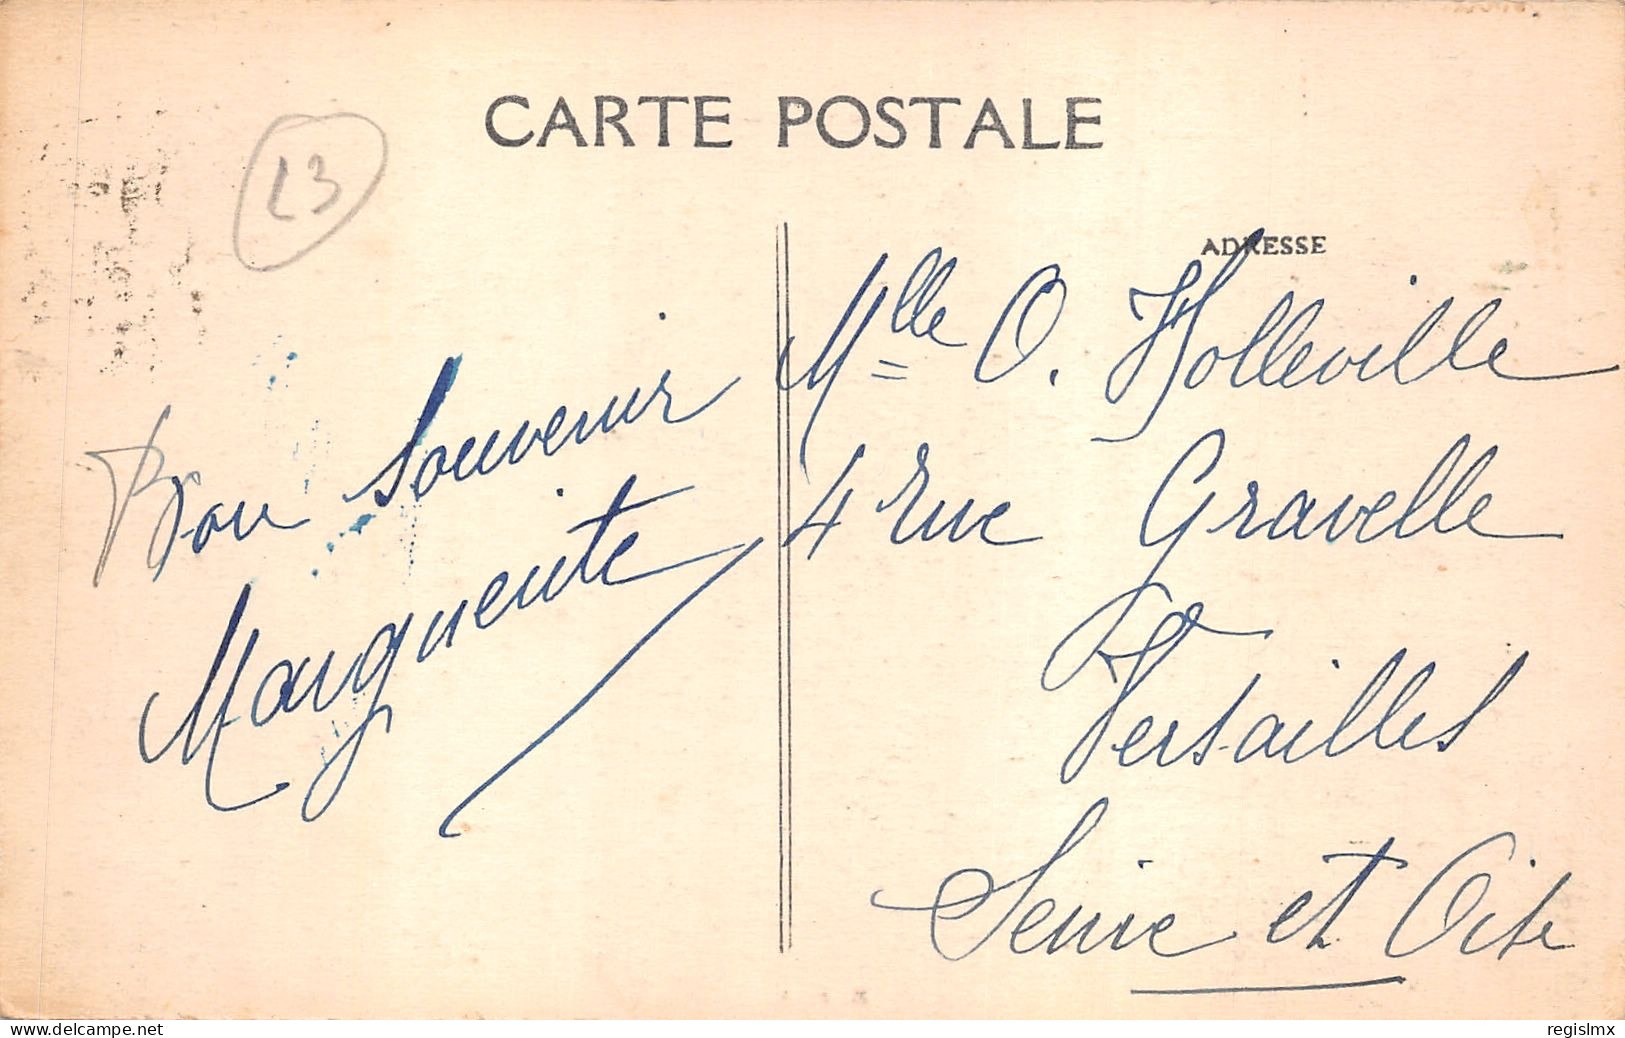 CARTE POSTALE
23
ADRESSE
Mlle O. Holleville
4 rue Gravelle
Versailles
Seine et Oise
Bon Souvenir
Marguerite
delcampe.net
regislmx